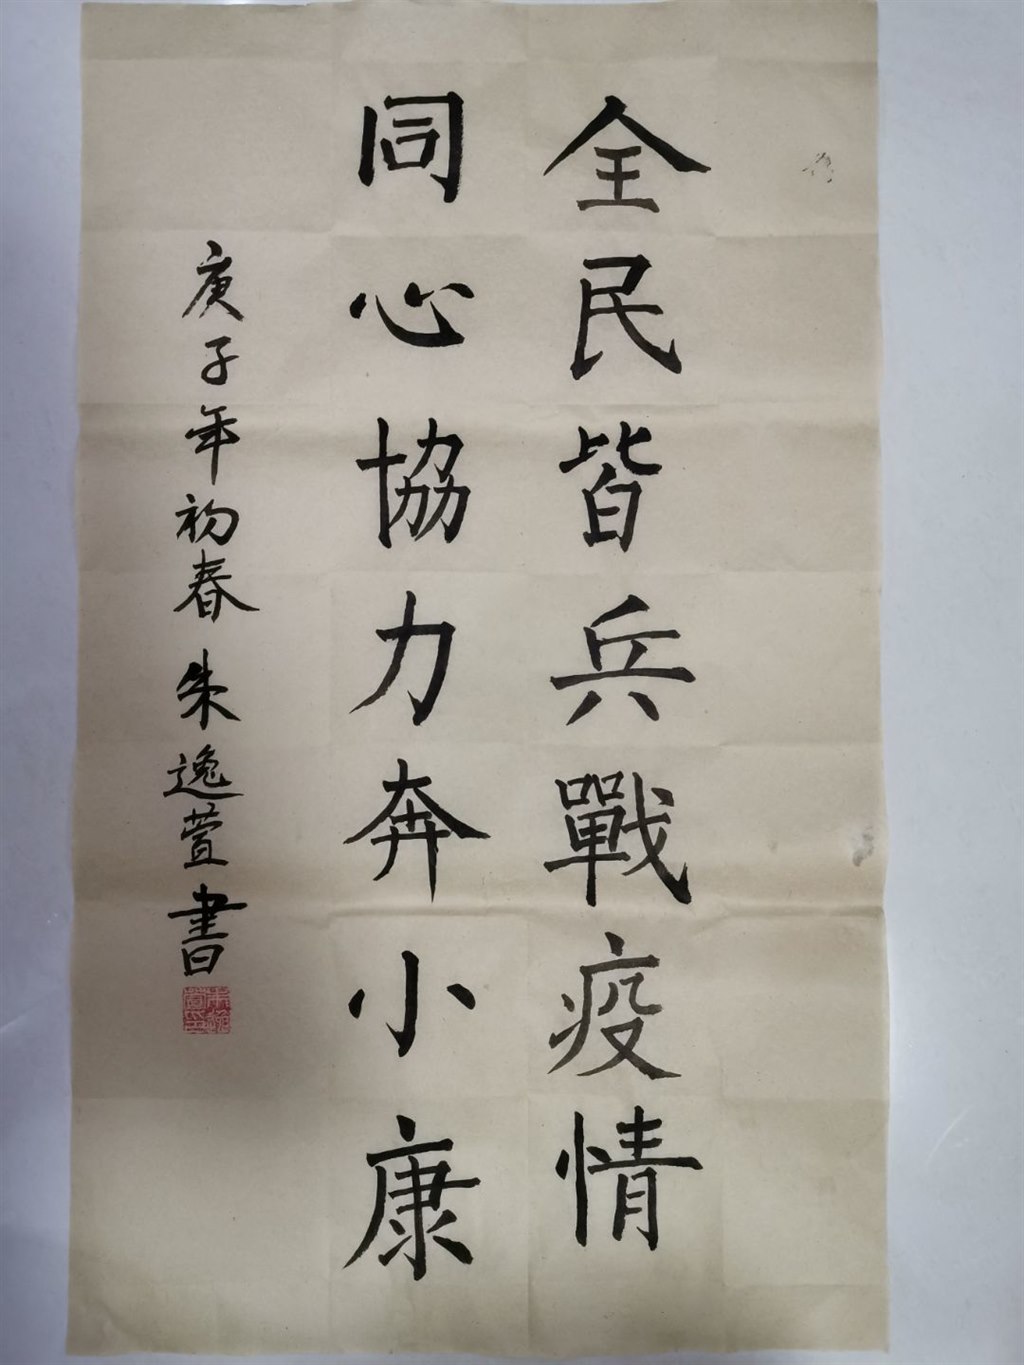 全民皆兵戰疫情
同心協力奔小康
庚子年初春 朱逸萱書